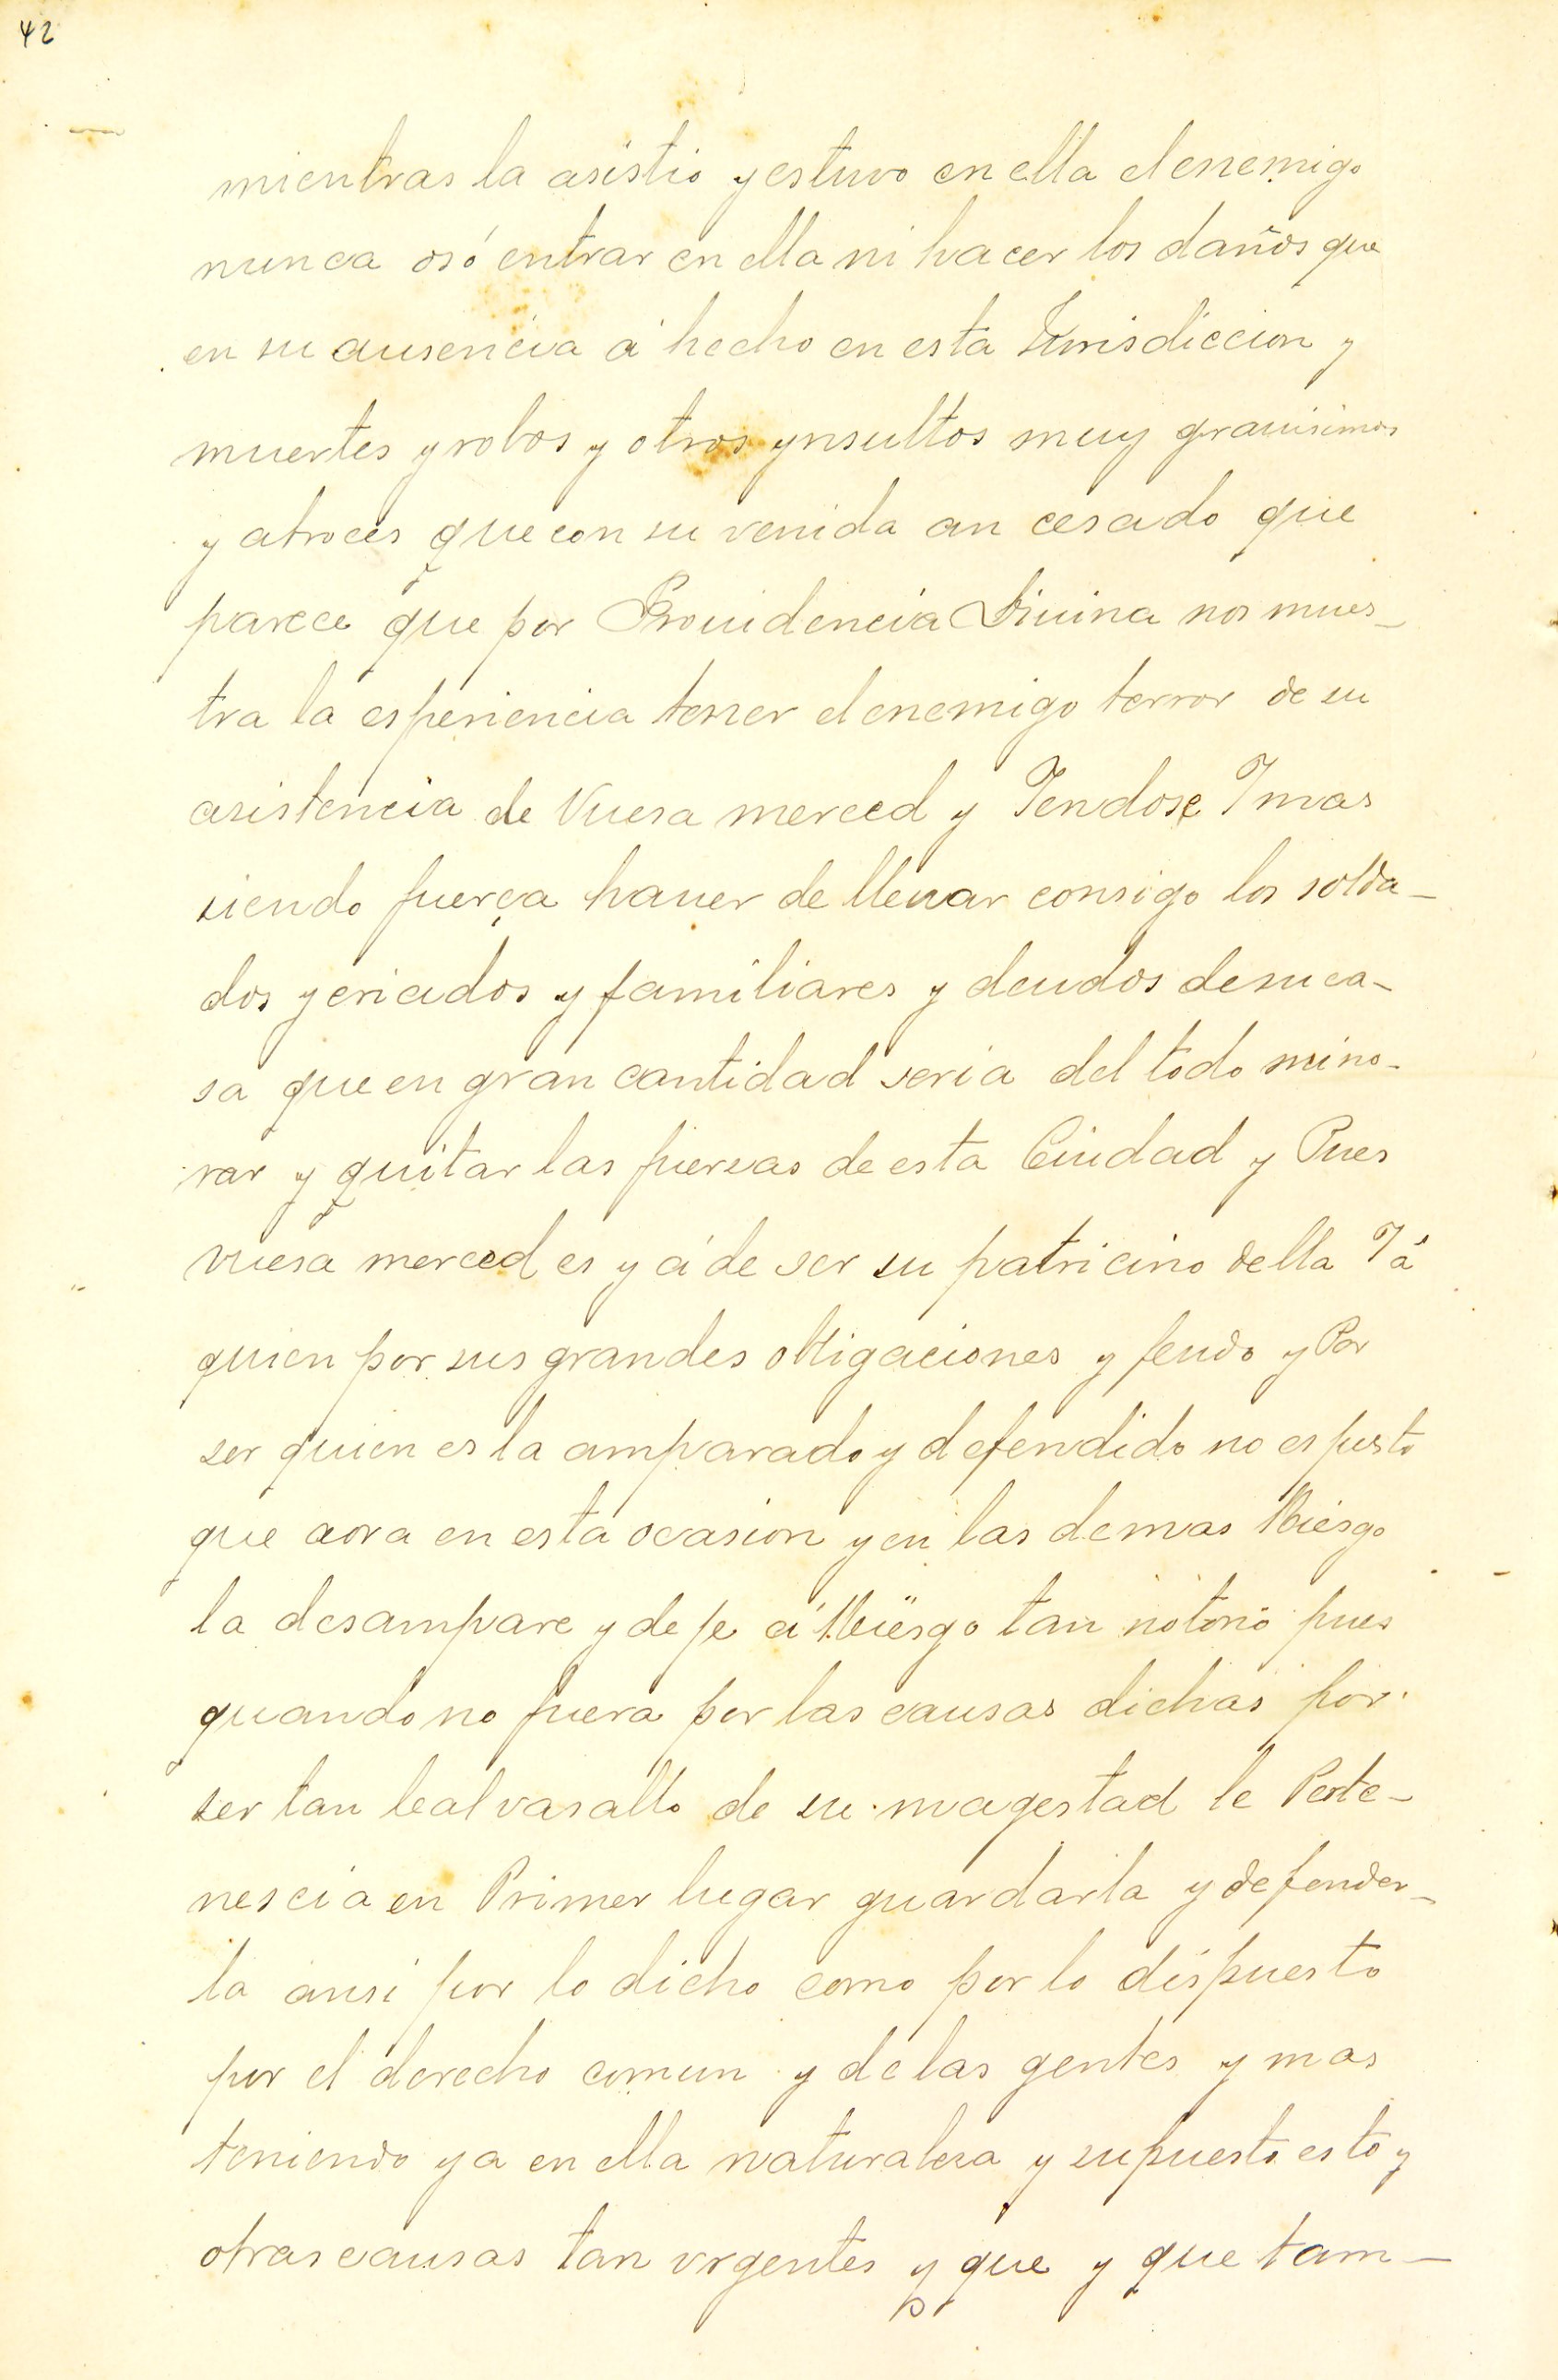 42
mientras la asistio y estuvo en ella el enemigo
nunca osó entrar en ella ni hacer los daños que
en su ausencia á hecho en esta Jurisdiccion y
muertes y robos y otros ynsultos muy grauisimos
y atroces que con su venida an cesado que
parece que por Prouidencia Diuina nos mues-
tra la esperiencia tener el enemigo terror de su
asistencia de Vuesa merced y Iendose I mas
siendo fuerça hauer de lleuar consigo los solda-
dos y criados y familiares y deudos de su ca-
sa que en gran cantidad seria del todo mino-
rar y quitar las fuerzas de esta Ciudad y Pues
vuesa merced es y á de ser su patricino della I á
quien por sus grandes obligaciones y feudo y Por
ser quien es la amparado y defendido no es justo
que aora en esta ocasion y en las demas Riesgo
la desampare y deje á Riesgo tan notorio pues
quando no fuera por las causas dichas por
ser tan leal vasallo de su magestad le Perte-
nescia en Primer lugar guardarla y defender-
la ansi por lo dicho como por lo dispuesto
por el derecho comun y de las gentes y mas
teniendo ya en ella naturaleza y supuesto esto y
otras causas tan vrgentes y que y que tam-